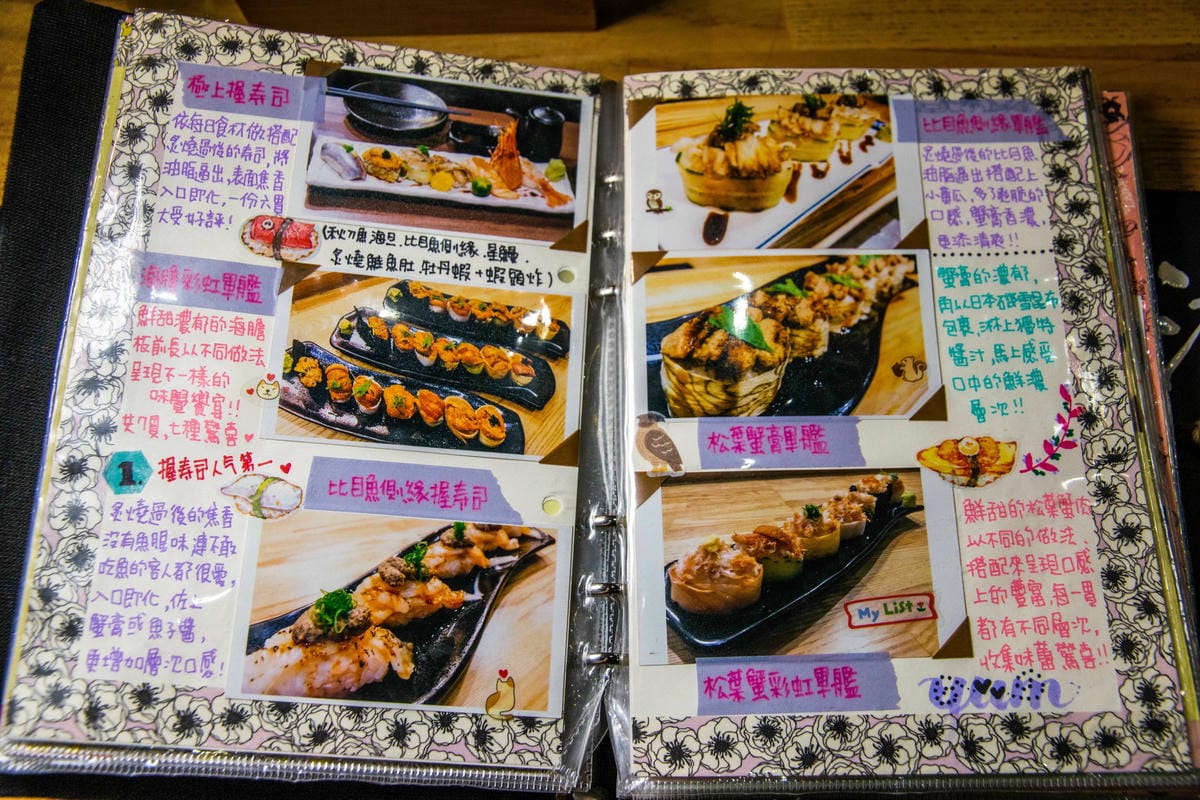 極上握寿司
依每日食材做搭配
炙燒過後的寿司,將
油脂逼出,表面焦香
入口即化,一份六貫
大受好評!
(秋刀魚海旦.比目魚側緣.星鰻.
炙燒鮭魚肚.牡丹蝦+蝦頭炸)
海膽彩虹軍艦
鮮甜濃郁的海膽
板前長以不同做法
呈現不一樣的
味覺饗宴!!
共7貫,七種驚喜
1
握寿司人气第一
炙燒過後的焦香
沒有魚腥味連不敢
吃魚的客人都很愛,
入口即化,佐上
蟹膏或魚子醬,
更增加層次口感!
比目魚側緣握寿司
比目魚側緣軍艦
炙燒過後的比目魚
油脂逼出搭配上
小黃瓜,多了爽脆的
口感,蟹膏香濃
更添清爽!!
蟹膏的濃郁,
再以日本磯雪昆布
包裹,淋上獨特
醬汁馬上感受
口中的鮮濃
層次!!
松葉蟹膏軍艦
鮮甜的松葉蟹肉
以不同的做法、
搭配來呈現口感
上的豐富,每一貫
都有不同層次,
收集味蕾驚喜!!
My List
松葉蟹彩虹軍艦
yum